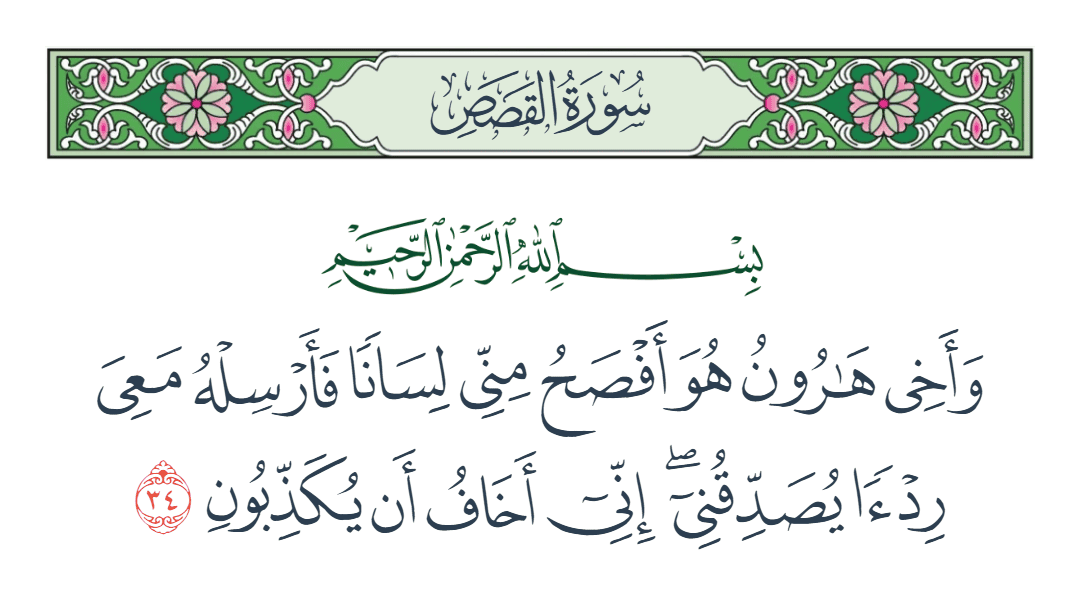 سُورَةُ القَصَصِ
بِسْمِ ٱللَّهِ ٱلرَّحْمَٰنِ ٱلرَّحِيمِ
وَأَخِى هَـٰرُونُ هُوَ أَفْصَحُ مِنِّى لِسَانًۭا فَأَرْسِلْهُ مَعِىَ
رِدْءًۭا يُصَدِّقُنِىٓ ۖ إِنِّىٓ أَخَافُ أَن يُكَذِّبُونِ ٣٤